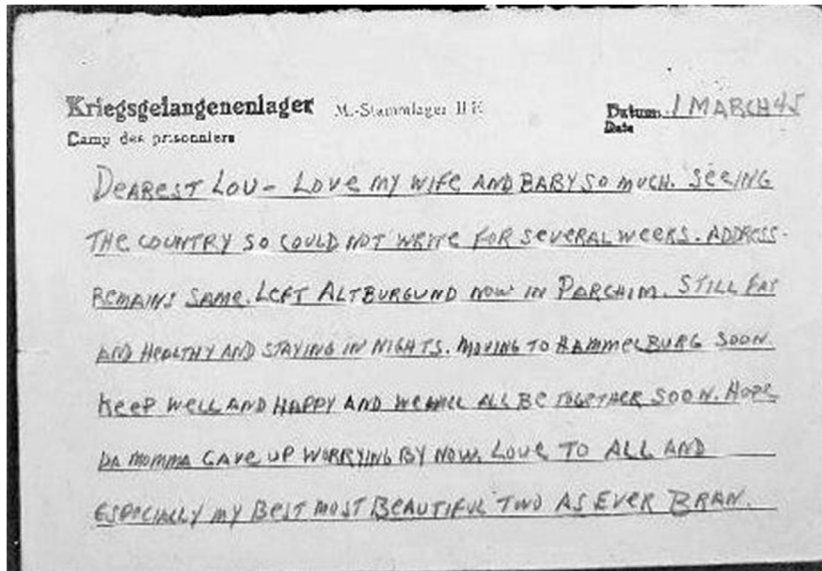 Kriegsgefangenenlager M.-Stammlager II E Datum 1 MARCH 45
Camp des prisonniers Date
DEAREST LOU - LOVE MY WIFE AND BABY SO MUCH. SEEING
THE COUNTRY SO COULD NOT WRITE FOR SEVERAL WEEKS. ADDRESS
REMAINS SAME. LEFT ALTBURGUND NOW IN PARCHIM. STILL FAT
AND HEALTHY AND STAYING IN NIGHTS. MOVING TO HAMMELBURG SOON.
KEEP WELL AND HAPPY AND WE WILL ALL BE TOGETHER SOON. HOPE
DA MOMMA GAVE UP WORRYING BY NOW. LOVE TO ALL AND
ESPECIALLY MY BEST MOST BEAUTIFUL TWO AS EVER BRAN.